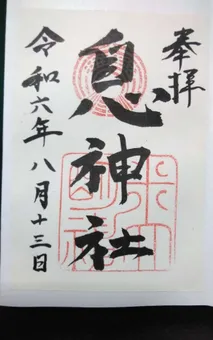 奉拝
息神社
令和六年八月十三日